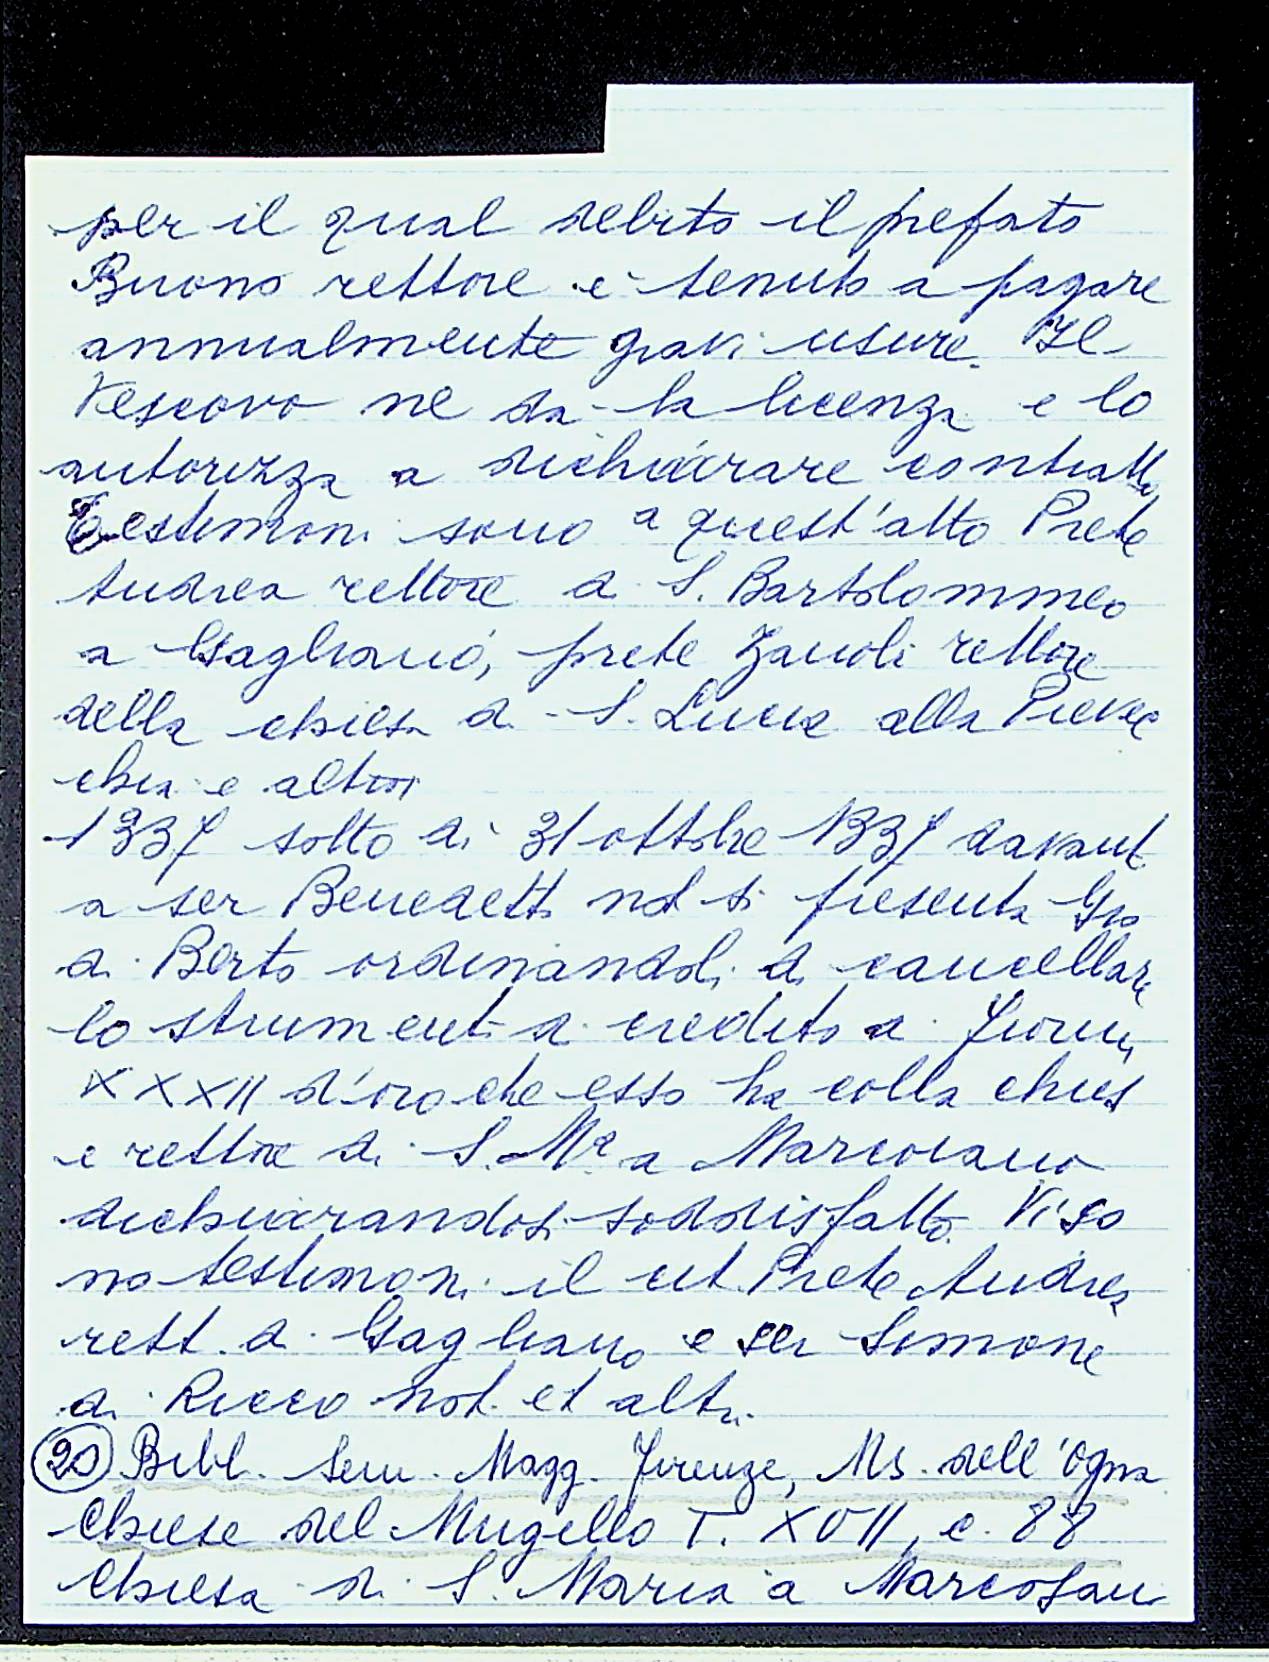 per il qual debito il prefato
Buono rettore è tenuto a pagare
annualmente gravi usure. Il
Vescovo ne da la licenza e lo
autorizza a dichiarare contratto
Testimoni sono a quest'atto Prete
Andrea rettore di S. Bartolommeo
a Gagliano, prete Zanoli rettore
della chiesa di S. Lucia alla Pievec
chia e altri
1337 sotto di 31 ottobre 1337 davant
a ser Benedetto not si presenta Gio
di Berto ordinandoli di cancellare
lo strumento di credito di fiorini
XXXII d'oro che esso ha colla chies
e rettore di S. Mª a Marcoiano
dichiarandosi soddisfatto. Vi so
no testimoni il cit. Prete Andrea
rett. di Gagliano e ser Simone
di Ricco not. et altri.
(20) Bibl. Sem. Magg. Firenze, Ms. dell'Ogna
Chiese del Mugello T. XVII, c. 88
Chiesa di S. Maria a Marcoian